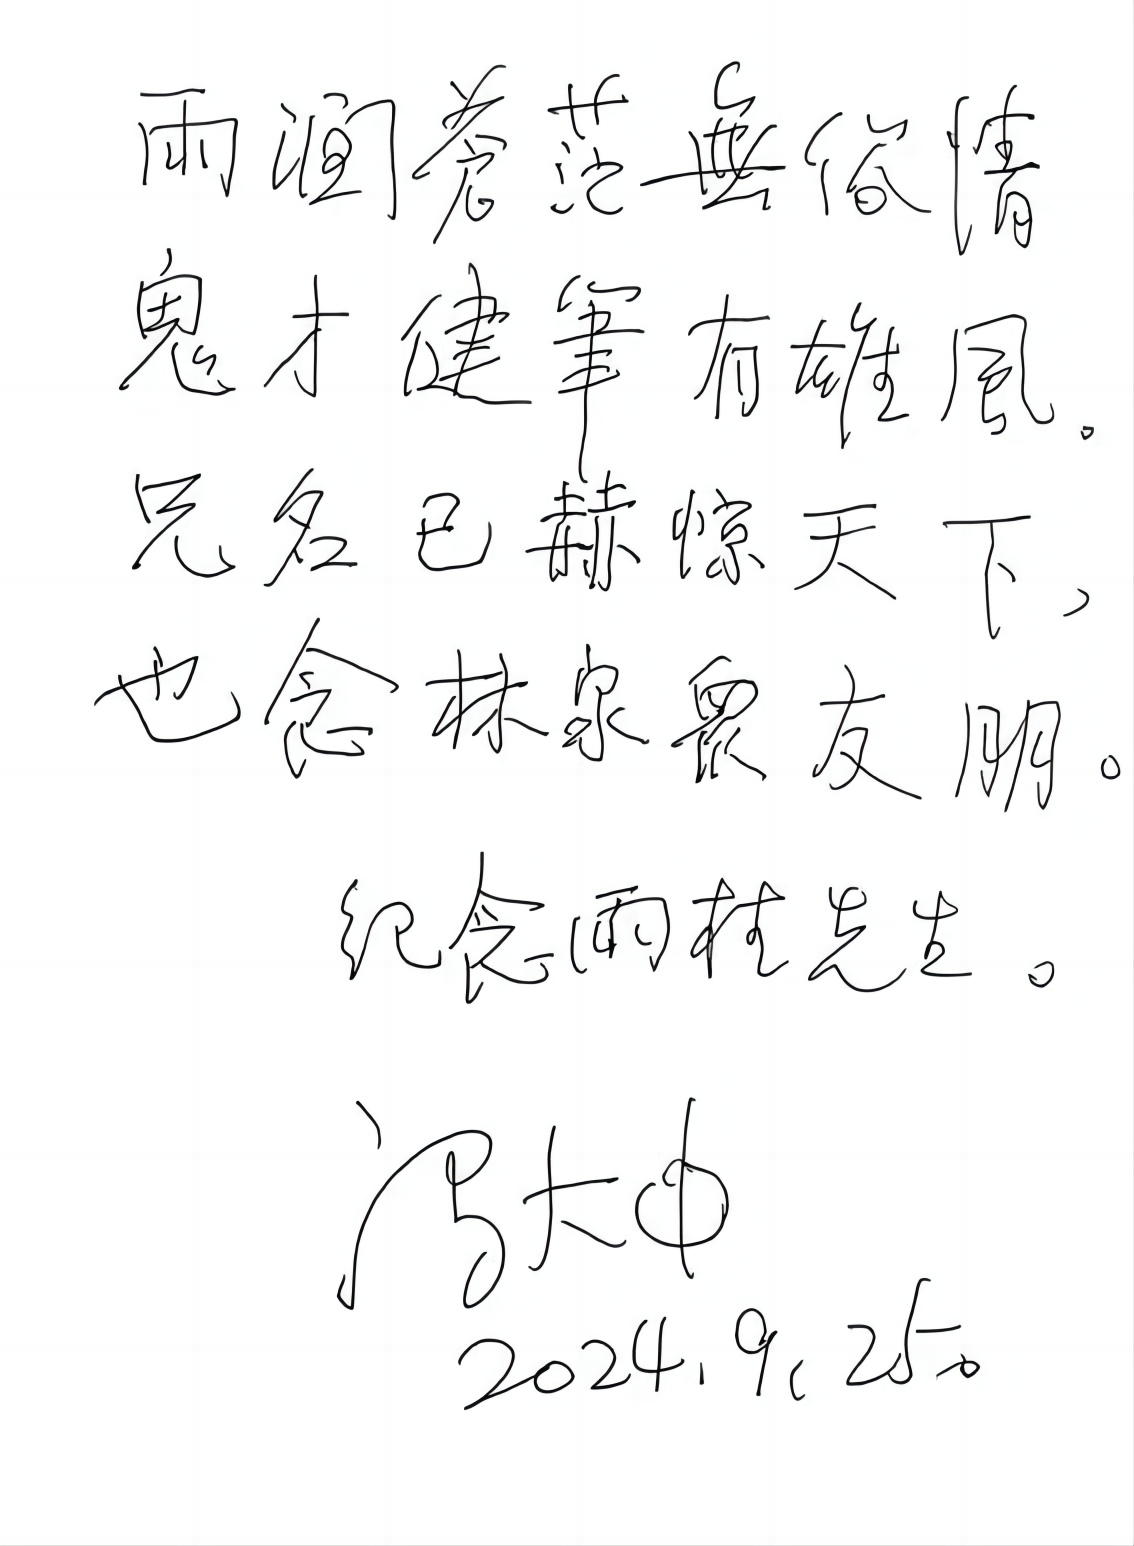 雨润苍茫無俗情
鬼才健筆有雄風。
兄名已赫惊天下，
也念林泉眾友朋。
纪念雨桂先生。
冯大中
2024.9.25。